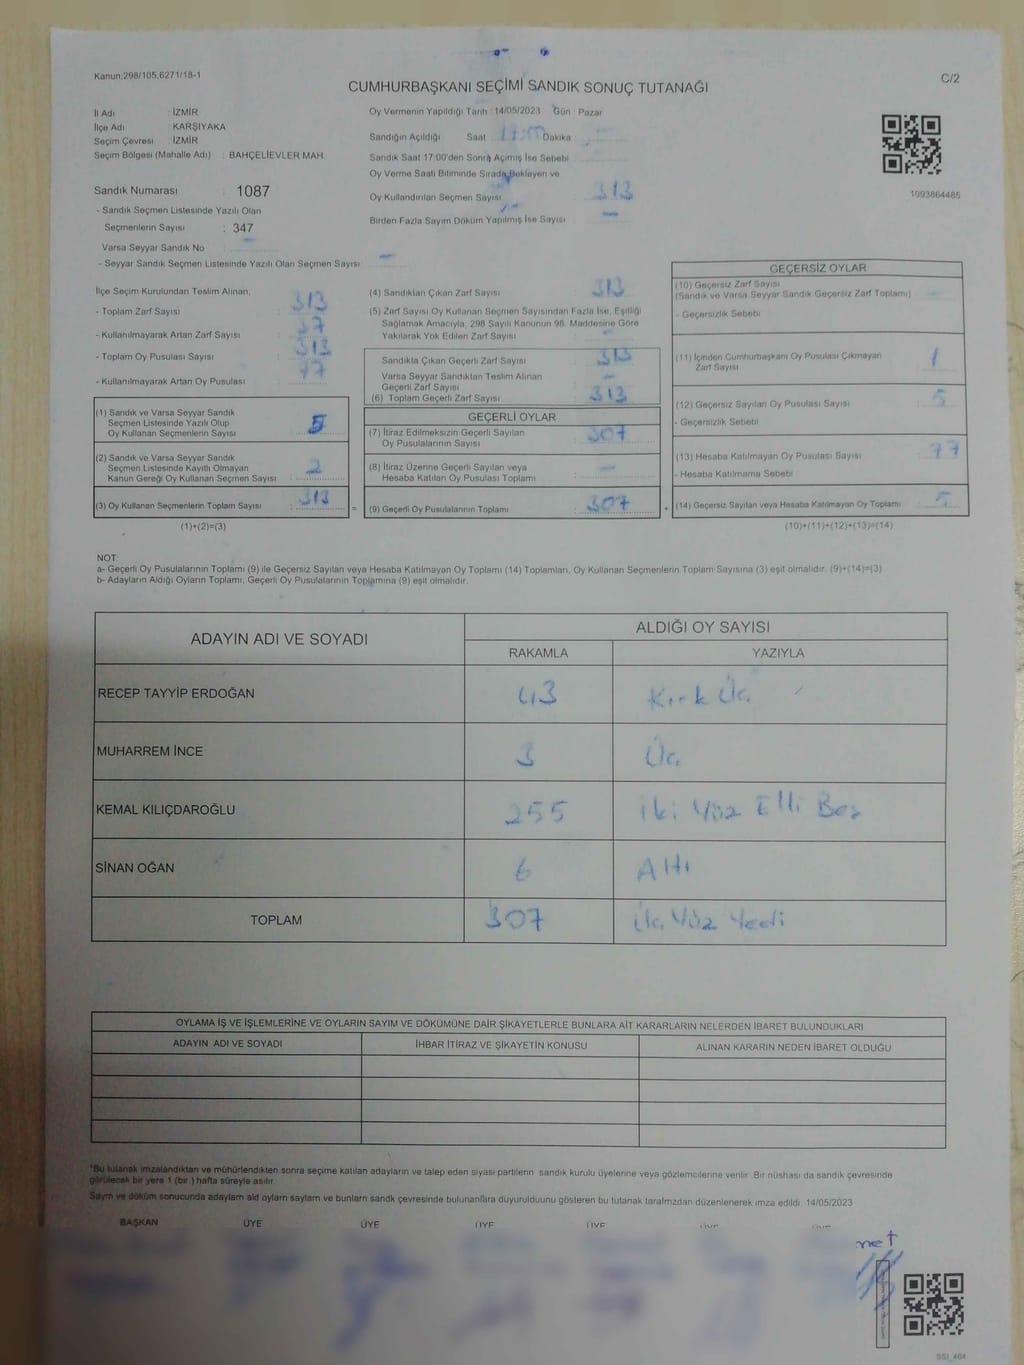 Kanun:298/105,6271/18-1
C/2
CUMHURBAŞKANI SEÇİMİ SANDIK SONUÇ TUTANAĞI
İl Adı : İZMİR
İlçe Adı : KARŞIYAKA
Seçim Çevresi : İZMİR
Seçim Bölgesi (Mahalle Adı) : BAHÇELİEVLER MAH.
Sandık Numarası : 1087
- Sandık Seçmen Listesinde Yazılı Olan
Seçmenlerin Sayısı : 347
Varsa Seyyar Sandık No –
- Seyyar Sandık Seçmen Listesinde Yazılı Olan Seçmen Sayısı –
Oy Vermenin Yapıldığı Tarih : 14/05/2023 Gün : Pazar
Sandığın Açıldığı Saat 17:00 Dakika :
Sandık Saat 17:00'den Sonra Açımış İse Sebebi
Oy Verme Saati Bitiminde Sırada Bekleyen ve
Oy Kullandırılan Seçmen Sayısı 313
Birden Fazla Sayım Döküm Yapılmış İse Sayısı –
1093864485
İlçe Seçim Kurulundan Teslim Alınan;
- Toplam Zarf Sayısı 313
- Kullanılmayarak Artan Zarf Sayısı 37
- Toplam Oy Pusulası Sayısı 313
- Kullanılmayarak Artan Oy Pusulası 77
(1) Sandık ve Varsa Seyyar Sandık
Seçmen Listesinde Yazılı Olup
Oy Kullanan Seçmenlerin Sayısı
(2) Sandık ve Varsa Seyyar Sandık
Seçmen Listesinde Kayıtlı Olmayan
Kanun Gereği Oy Kullanan Seçmen Sayısı : 2
(3) Oy Kullanan Seçmenlerin Toplam Sayısı : 313
(1)+(2)=(3)
(4) Sandıktan Çıkan Zarf Sayısı 313
(5) Zarf Sayısı Oy Kullanan Seçmen Sayısından Fazla İse, Eşitliği
Sağlamak Amacıyla, 298 Sayılı Kanunun 98. Maddesine Göre
Yakılarak Yok Edilen Zarf Sayısı
Sandıkta Çıkan Geçerli Zarf Sayısı 313
Varsa Seyyar Sandıktan Teslim Alınan
Geçerli Zarf Sayısı –
(6) Toplam Geçerli Zarf Sayısı : 313
GEÇERLİ OYLAR
(7) İtiraz Edilmeksizin Geçerli Sayılan
Oy Pusulalarının Sayısı 307
(8) İtiraz Üzerine Geçerli Sayılan veya
Hesaba Katılan Oy Pusulası Toplamı –
=
(9) Geçerli Oy Pusulalarının Toplamı 307
+
GEÇERSİZ OYLAR
(10) Geçersiz Zarf Sayısı
(Sandık ve Varsa Seyyar Sandık Geçersiz Zarf Toplamı)
- Geçersizlik Sebebi
(11) İçinden Cumhurbaşkanı Oy Pusulası Çıkmayan
Zarf Sayısı 1
(12) Geçersiz Sayılan Oy Pusulası Sayısı 5
- Geçersizlik Sebebi
(13) Hesaba Katılmayan Oy Pusulası Sayısı 77
- Hesaba Katılmama Sebebi
(14) Geçersiz Sayılan veya Hesaba Katılmayan Oy Toplamı 5
(10)+(11)+(12)+(13)=(14)
NOT:
a- Geçerli Oy Pusulalarının Toplamı (9) ile Geçersiz Sayılan veya Hesaba Katılmayan Oy Toplamı (14) Toplamları, Oy Kullanan Seçmenlerin Toplam Sayısına (3) eşit olmalıdır. (9)+(14)=(3)
b- Adayların Aldığı Oyların Toplamı, Geçerli Oy Pusulalarının Toplamına (9) eşit olmalıdır.
ADAYIN ADI VE SOYADI
ALDIĞI OY SAYISI
RAKAMLA YAZIYLA
RECEP TAYYİP ERDOĞAN 43 Kırk Üç
MUHARREM İNCE 3 Üç
KEMAL KILIÇDAROĞLU 255 iki Yüz Elli Beş
SİNAN OĞAN 6 Altı
TOPLAM 307 Üç Yüz Yedi
OYLAMA İŞ VE İŞLEMLERİNE VE OYLARIN SAYIM VE DÖKÜMÜNE DAİR ŞİKAYETLERLE BUNLARA AİT KARARLARIN NELERDEN İBARET BULUNDUKLARI
ADAYIN ADI VE SOYADI İHBAR İTİRAZ VE ŞİKAYETİN KONUSU ALINAN KARARIN NEDEN İBARET OLDUĞU
*Bu tutanak imzalandıktan ve mühürlendikten sonra seçime katılan adayların ve talep eden siyasi partilerin sandık kurulu üyelerine veya gözlemcilerine verilir. Bir nüshası da sandık çevresinde
görülecek bir yere 1 (bir ) hafta süreyle asılır.
Sayım ve döküm sonucunda adaylarn ald oylarn saylarn ve bunlarn sandk çevresinde bulunanlara duyurulduunu gösteren bu tutanak tarafmzdan düzenlenerek imza edildi. 14/05/2023
BAŞKAN ÜYE ÜYE ÜYE ÜYE ÜYE ÜYE
SSI_404